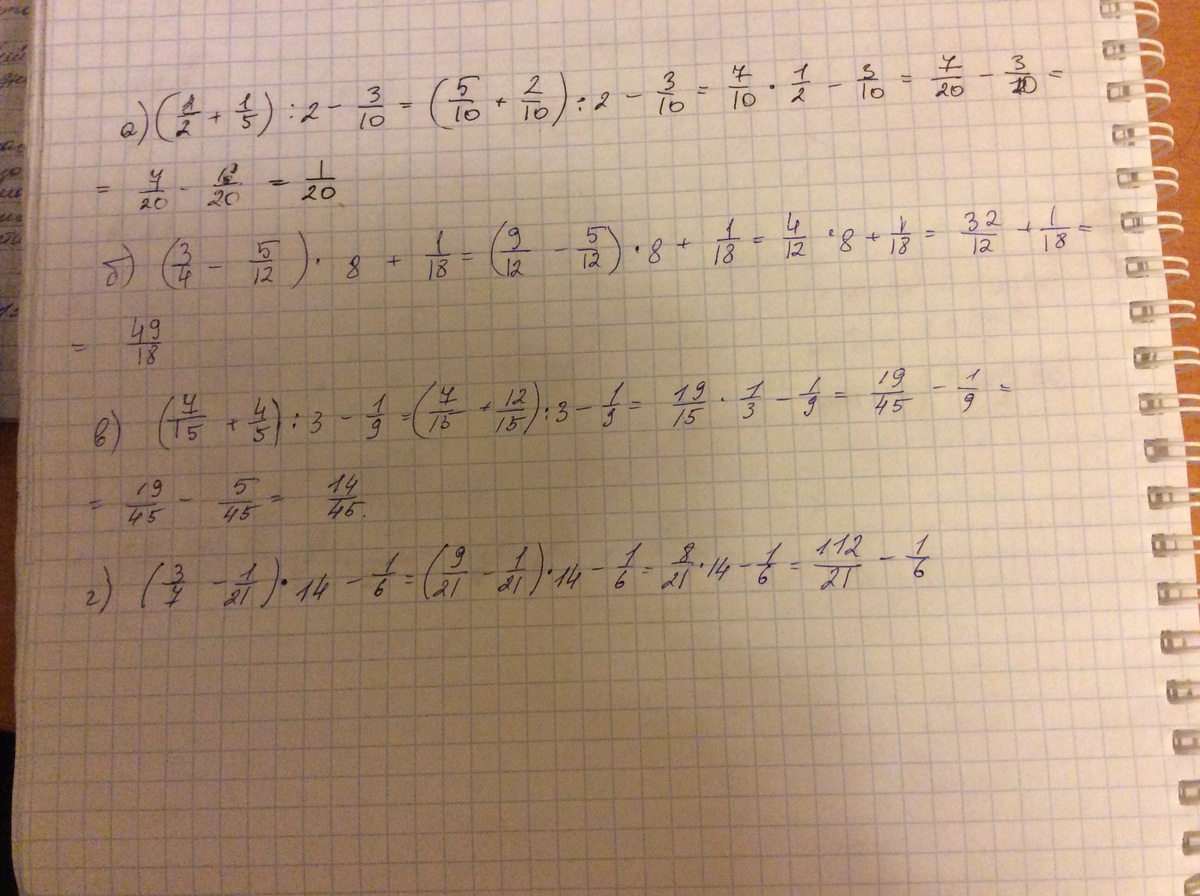 а) (1/2 + 1/5) : 2 − 3/10 = (5/10 + 2/10) : 2 − 3/10 = 7/10 · 1/2 − 3/10 = 7/20 − 3/10 =
= 7/20 − 6/20 = 1/20
б) (3/4 − 5/12) · 8 + 1/18 = (9/12 − 5/12) · 8 + 1/18 = 4/12 · 8 + 1/18 = 32/12 + 1/18 =
= 49/18
в) (7/15 + 4/5) : 3 − 1/9 = (7/15 + 12/15) : 3 − 1/9 = 19/15 · 1/3 − 1/9 = 19/45 − 1/9 =
= 19/45 − 5/45 = 14/45.
г) (3/7 − 1/21) · 14 − 1/6 = (9/21 − 1/21) · 14 − 1/6 = 8/21 · 14 − 1/6 = 112/21 − 1/6